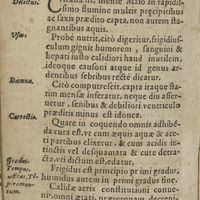 Delectus.
Citauda sit, mense Maio in rapidis-
simo flumine multis præcipitibus
ac saxis prædito capta, non autem sta-
gnantibus aquis.
Usus.
Probè nutrit, citò digeritur, frigidiu-
sculum gignit humorem, sanguini &
hepati iusto calidiori haud inutilem,
ideoque ęstuoni atque id genus ar-
dentibus febribus rectè dicatur.
Damna.
Citò computrescit. capta itaque sta-
tim meridie inferatur. neque diu asse-
uetur, senibus & debiliori ventriculo
præditis minus est idonea.
Correctio.
Quare in coquendo omnis adhibẽ-
da cura est. vt cum aquis atquè & ace-
ti partibus elixetur, citò è suis tinctis
vel desquamata & cute detra-
cta, vti dictum est, edatur.
Gradus.
Tempus,
ætas, tẽ-
peramen-
tum.
Frigidus est principio primi gradus,
humidus autem primi gradus fine.
Calidæ aeris constitutioni conue-
nit, omni ætati, præcipuum decrepi-